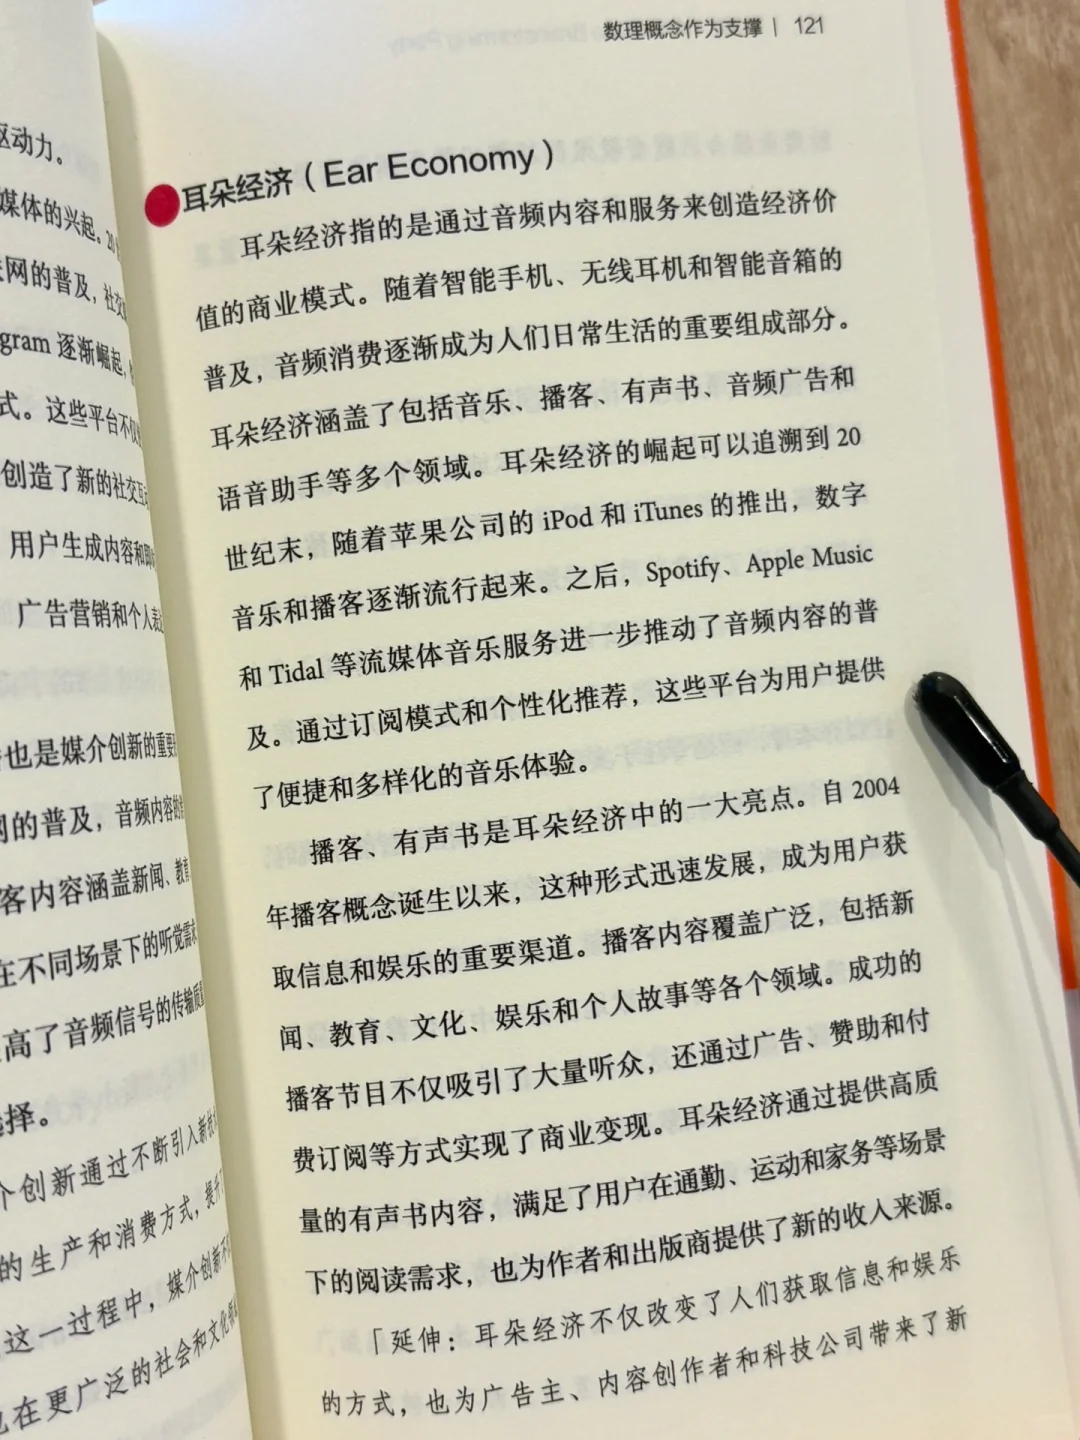 驱动力。
媒体的兴起。20
网的普及，社交
gram 逐渐崛起，
式。这些平台不仅
创造了新的社交互
用户生成内容和即
广告营销和个人表达
也是媒介创新的重要
网的普及，音频内容的
客内容涵盖新闻、教育
在不同场景下的听觉需求
高了音频信号的传输质量
选择。
个创新通过不断引入新技
的生产和消费方式，提升
这一过程中，媒介创新不
在更广泛的社会和文化领
数理概念作为支撑 | 121
耳朵经济（Ear Economy）
耳朵经济指的是通过音频内容和服务来创造经济价
值的商业模式。随着智能手机、无线耳机和智能音箱的
普及，音频消费逐渐成为人们日常生活的重要组成部分。
耳朵经济涵盖了包括音乐、播客、有声书、音频广告和
语音助手等多个领域。耳朵经济的崛起可以追溯到 20
世纪末，随着苹果公司的 iPod 和 iTunes 的推出，数字
音乐和播客逐渐流行起来。之后，Spotify、Apple Music
和 Tidal 等流媒体音乐服务进一步推动了音频内容的普
及。通过订阅模式和个性化推荐，这些平台为用户提供
了便捷和多样化的音乐体验。
播客、有声书是耳朵经济中的一大亮点。自 2004
年播客概念诞生以来，这种形式迅速发展，成为用户获
取信息和娱乐的重要渠道。播客内容覆盖广泛，包括新
闻、教育、文化、娱乐和个人故事等各个领域。成功的
播客节目不仅吸引了大量听众，还通过广告、赞助和付
费订阅等方式实现了商业变现。耳朵经济通过提供高质
量的有声书内容，满足了用户在通勤、运动和家务等场景
下的阅读需求，也为作者和出版商提供了新的收入来源。
「延伸：耳朵经济不仅改变了人们获取信息和娱乐
的方式，也为广告主、内容创作者和科技公司带来了新